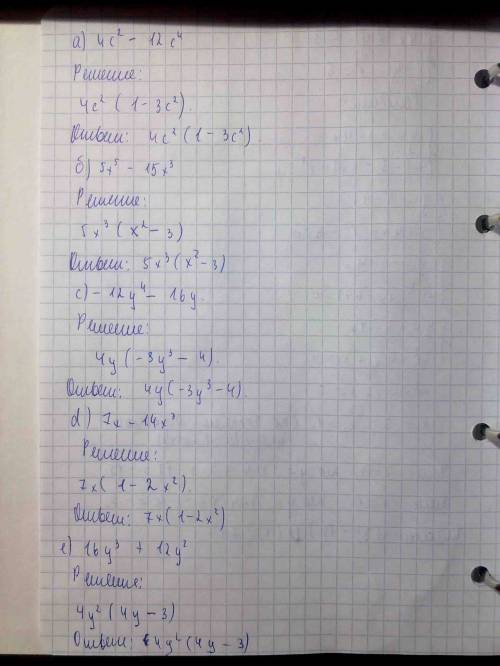 а) 4c² - 12c⁴
Решение:
4c² (1 - 3c²).
Ответ: 4c² (1 - 3c²)
б) 5x⁵ - 15x³
Решение:
5x³ (x² - 3)
Ответ: 5x³ (x² - 3)
c) - 12y⁴ - 16y.
Решение:
4y (-3y³ - 4).
Ответ: 4y (-3y³ - 4).
d) 7x - 14x³
Решение:
7x (1 - 2x²).
Ответ: 7x (1 - 2x²)
e) 16y³ + 12y²
Решение:
4y² (4y - 3)
Ответ: 4y² (4y - 3)